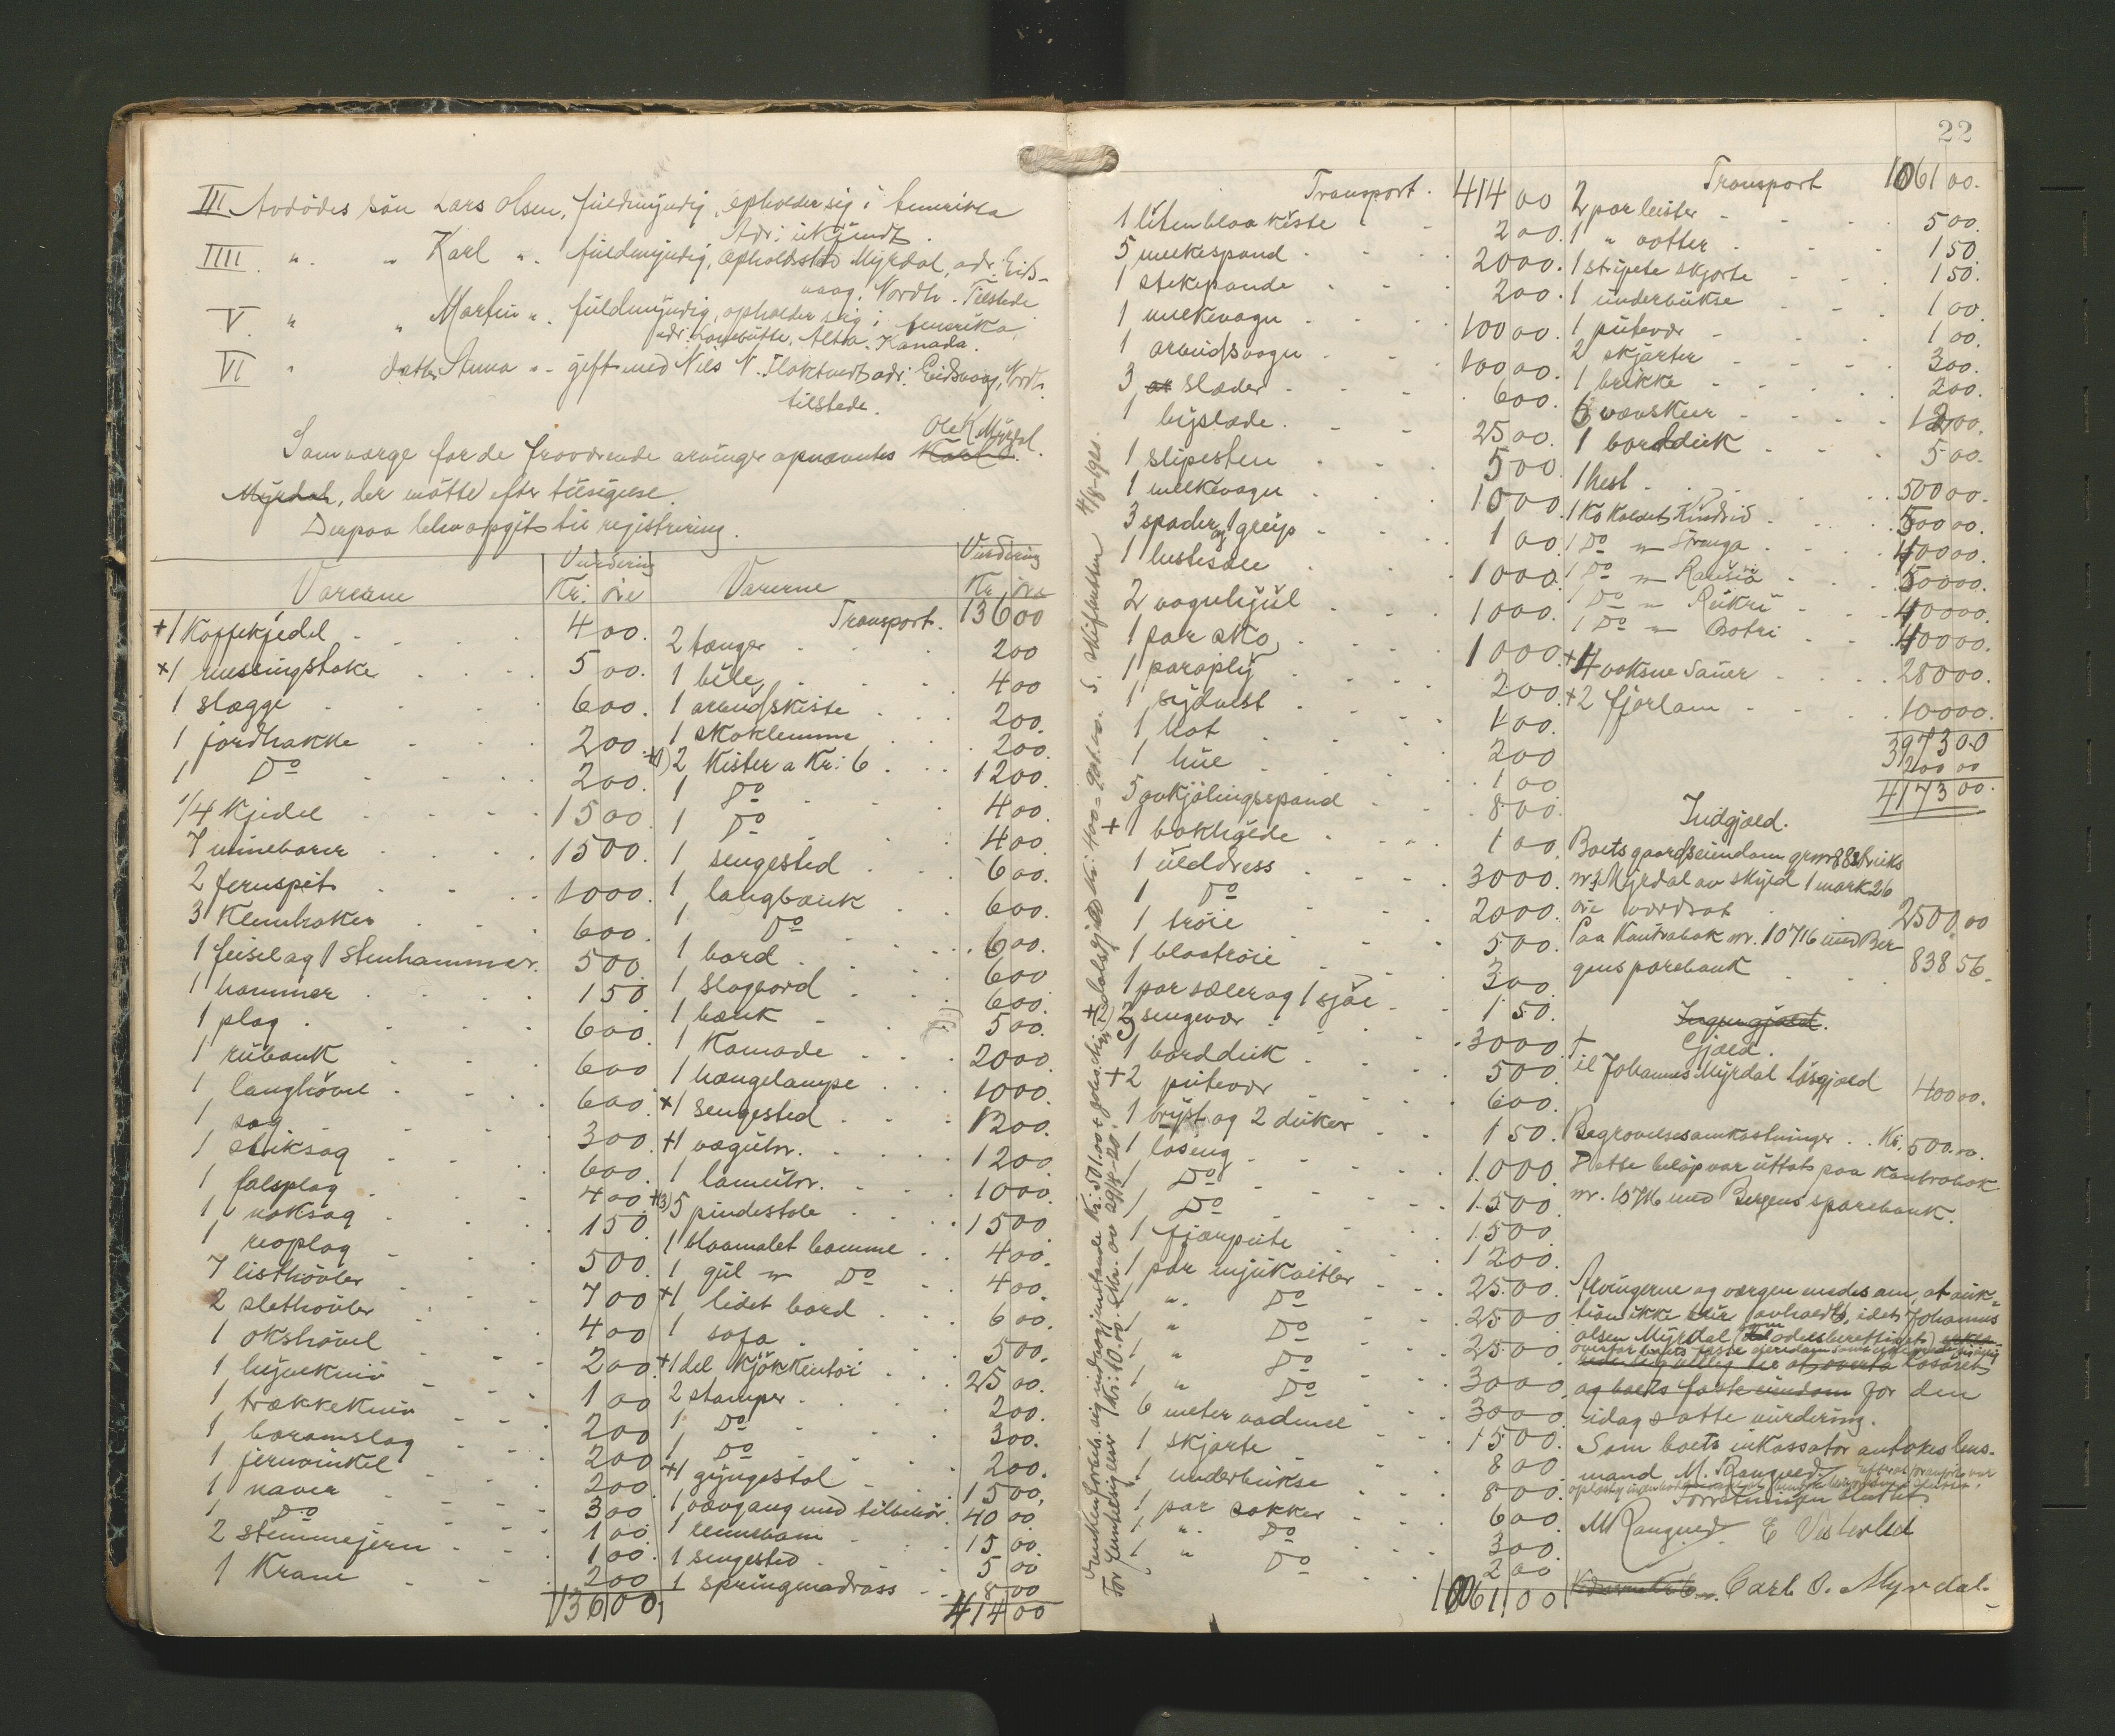 III Avdödes sön Lars Olsen, fuldmyndig, opholder sig i Amerika
Adr: ukjendt.
IIII " " Karl " fuldmyndig, opholdssted Myrdal, adr. Eids-
vaag. Nordh. Tilstede
V " " Martin " fuldmyndig, opholder sig i Amerika,
adr: Alta. Kanada.
VI " datter Anna " gift med Nils N. Adr. Eidsvaag, Nordh.
tilstede.
Ole K Myrdal.
Som værge for de fraværende arvinger opnævntes Karl
Myrdal, der mötte efter tilsigelse.
Derpaa blev opgit til registrering.
Varerne
Vurdering
Kr. öre
+1 Kaffekjedel 4 00.
×1 messingstake 5 00.
1 slægge 6 00.
1 jordhakke 2 00.
1 Do 2 00.
1/4 Kjedel 15 00.
7 mineborer 15 00.
2 jernspet 10 00.
3 Klemhaker 6 00.
1 feisel og 1 Stenhammer. 5 00.
1 hammer 1 50
1 plog 6 00.
1 rubank 6 00
1 langhövel 6 00.
1 sag 3 00.
1 stiksag 6 00.
1 falsplog 4 00.
1 noksag 1 50.
1 reoplog 5 00.
7 listhövler 7 00
2 slethövler 4 00
1 okshövel 2 00.
1 1 00
1 trækkekniv 2 00
1 2 00
1 jernvinkel 2 00.
1 naver 3 00
1 Do 1 00.
2 stemmejern 1 00.
1 Kran 2 00
136 00
Varerne
Vurdering
Kr. öre
Transport. 136 00
2 tænger 2 00
1 bile 4 00
1 arbeidskiste 2 00.
1 skoklemme 2 00.
+1) 2 Kister a Kr: 6 12 00.
1 Do 4 00.
1 Do 4 00.
1 sengested 6 00.
1 langbænk 6 00.
1 Do 6 00.
1 bord 6 00
1 slagbord 6 00.
1 bænk 5 00.
1 Komode 20 00
1 hængelampe 10 00.
×1 sengested 12 00.
+1 vægur. 12 00
1 lomur. 10 00.
+3) 5 pindestole 15 00
1 blaamalet komme 4 00.
1 gul " Do 4 00.
×1 lidet bord 6 00.
1 sofa 5 00.
+1 del Kjökkentöi 25 00.
2 stamper 2 00.
1 Do 3 00.
1 Do 2 00.
+1 gyngestol 15 00.
1 vævgang med tilbehör 40 00
1 15 00.
1 sengested 5 00
1 springmadrass 8 00
414 00
22
Transport. 414 00
1 liten blaa kiste 2 00.
5 melkespand 20 00.
1 stekepande 2 00.
1 melkevogn 100 00.
1 arbeidsvogn 100 00.
3 slæder 6 00.
1 byslæde 25 00.
1 slipesten 5 00
1 melkevogn 10 00.
3 spader og 1 greip 1 00.
1 hestesæle 10 00.
2 vognhjul 10 00.
1 par sko 10 00.
1 paraply 2 00.
1 sydvest 1 00.
1 hat 2 00
1 hue 1 00
5 avkjölingsspand 8 00.
+1 bokhylde 1 00.
1 uldress 30 00.
1 Do 20 00.
1 tröie 5 00.
1 blaatröie 3 00.
1 par sæler og 1 sjöl 1 50.
+ 3 sengevær 30 00
1 borddik 5 00
+2 putevær 6 00.
1 bryst og 2 duker 1 50.
1 losing 10 00.
1 Do 15 00.
1 Do 15 00.
1 fjærpute 12 00.
1 par mjukvitler 25 00.
" Do 25 00
1 " Do 25 00
1 " Do 30 00.
1 " Do 30 00
6 meter vadmel 15 00.
1 skjorte 8 00
1 underbukse 8 00.
1 par sokker 6 00.
1 " Do 3 00.
1 " Do 2 00
1061 00
Transport 1061 00.
2 par leister 5 00.
1 " votter 1 50.
1 stripete skjorte 1 50.
1 underbukse 1 00.
1 putevær 1 00.
2 skjorter 3 00.
1 brikke 2 00.
6 12 00.
1 borddik 5 00.
1 hest 500 00.
1 Ko kaldet Kindrid 500 00.
1 Do " 400 00.
1 Do " 500 00.
1 Do " 400 00.
1 Do " Botri 400 00.
+4 voksne Sauer 280 00.
+2 fjorlam 100 00.
3973 00
200 00
4173 00.
Indgjæld.
Boets gaardseiendom grnr 88 bruks
nr 3 Myrdal av skyld 1 mark 26
öre værdsat 2500 00
Paa Kontrabok nr. 10716 med Ber-
gens sparebank 838 56.
Ingen gjæld.
Gjæld.
Til Johannes Myrdal lösgjæld 400 00.
Begravelsesomkostninger Kr. 500.00.
Dette belöp var uttat paa kontrabok
nr. 10716 med Bergens sparebank.
Arvingerne og vergen enedes om, at auk-
tion ikke blir avholdt, idet Johannes
Olsen Myrdal som odelsberettiget
overtar boets faste eiendom
og boets faste eiendom for den
idag satte vurdering.
Som boets inkassator antokes lens-
mand M. Rangved.
Forretningen sluttet.
M Rangved E Vesterlid
Carl O. Myrdal.